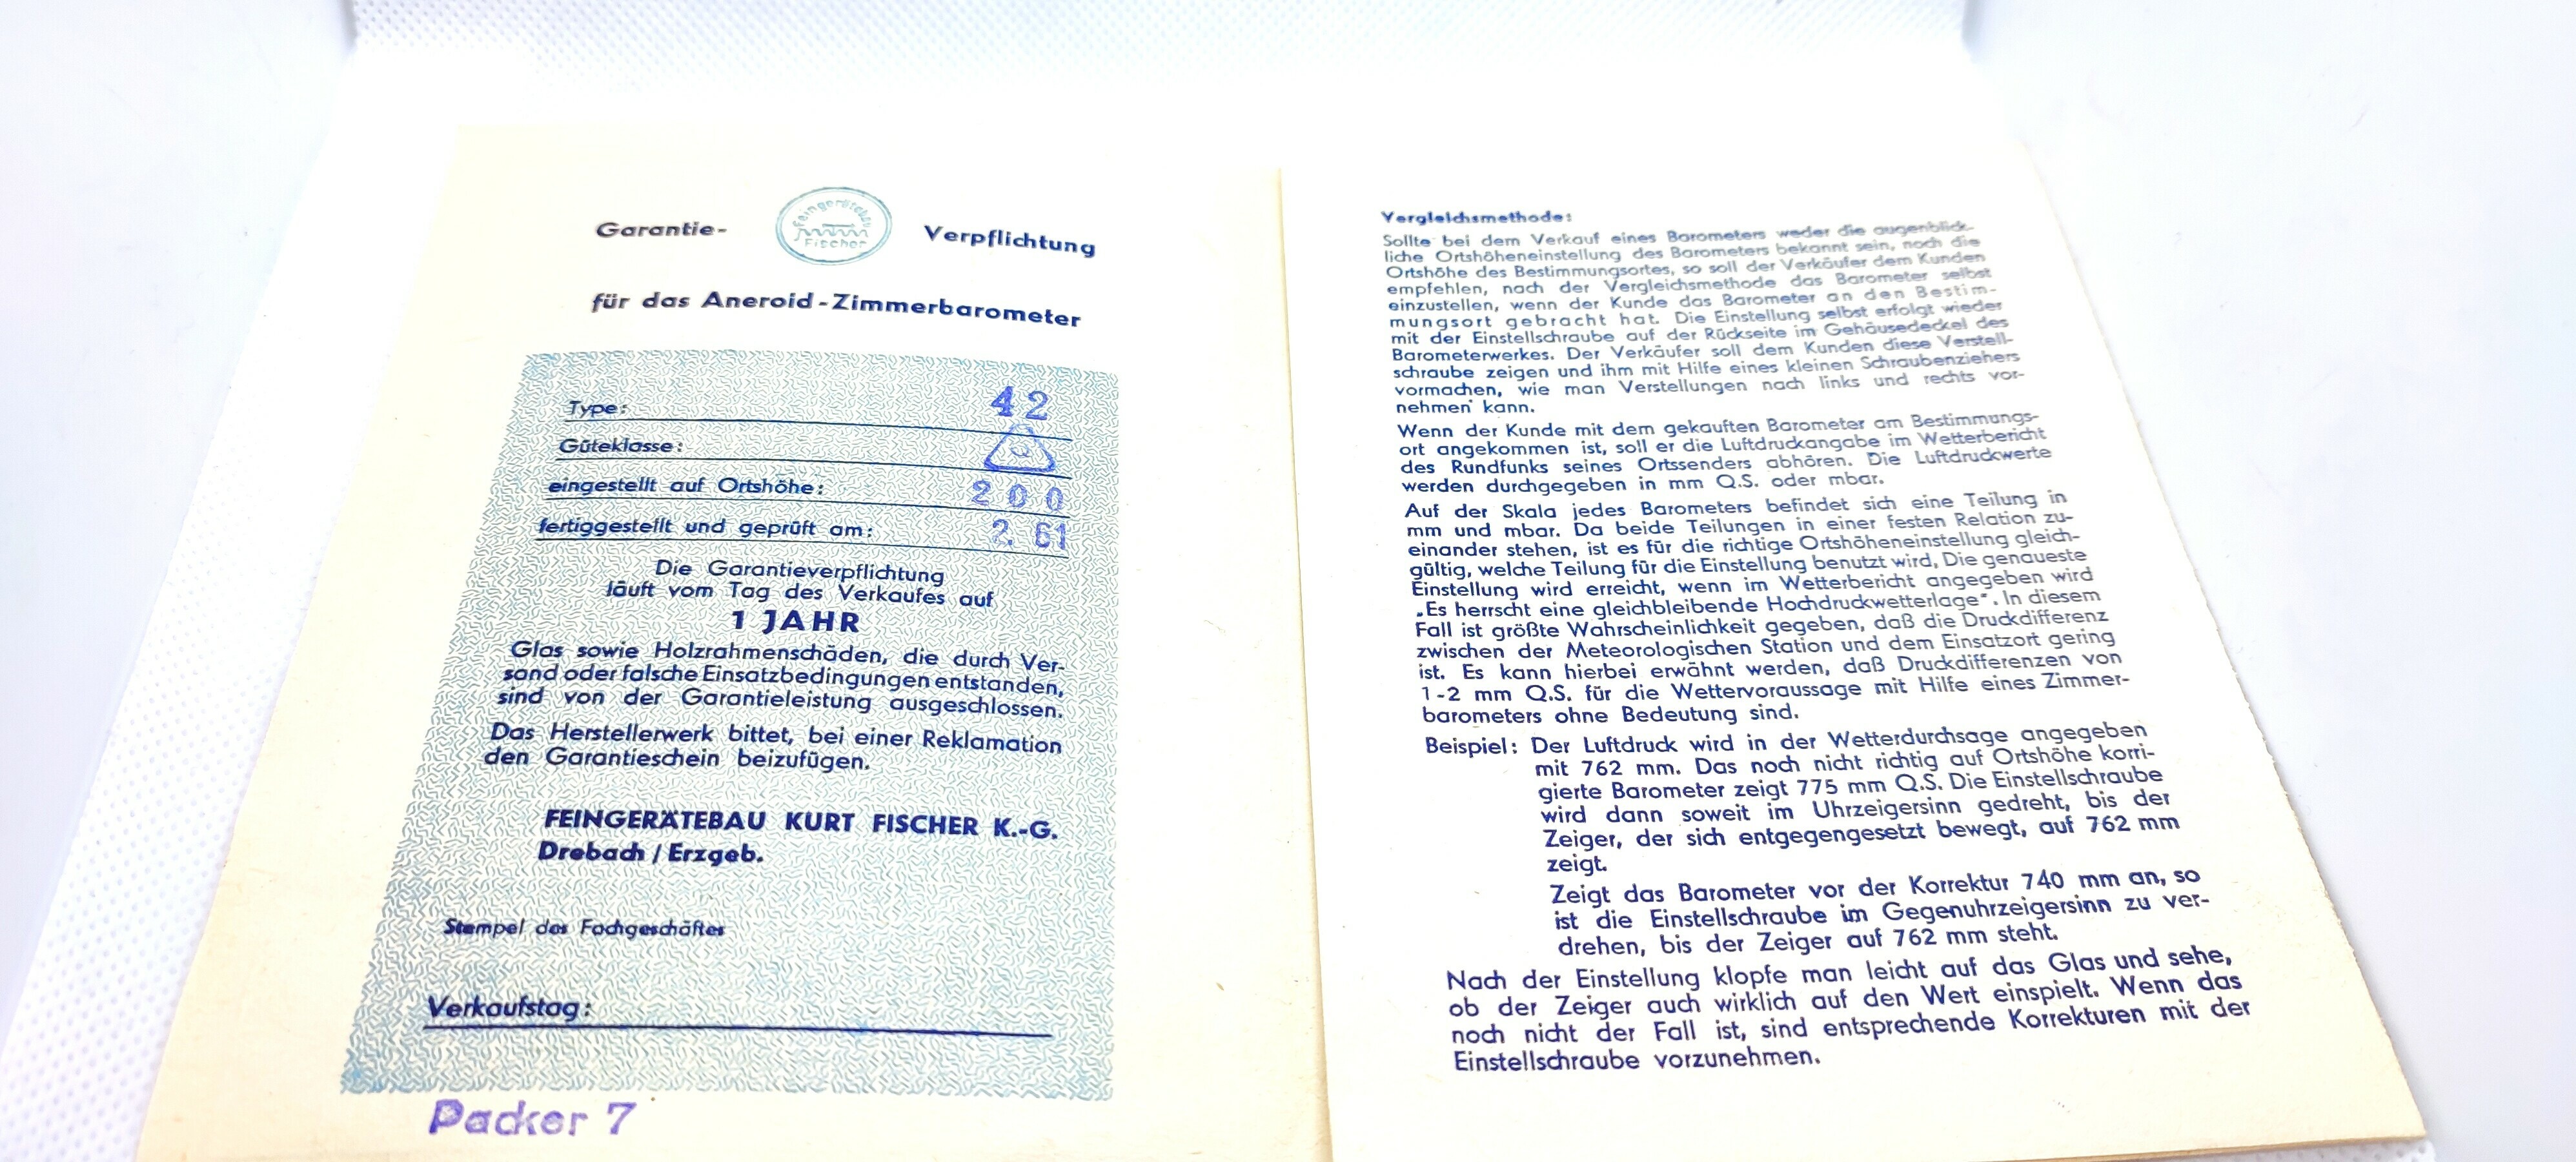 Garantie- Verpflichtung
Feingerätebau
Fischer
für das Aneroid-Zimmerbarometer
Type: 42
Güteklasse:
eingestellt auf Ortshöhe: 200
fertiggestellt und geprüft am: 2. 61
Die Garantieverpflichtung
läuft vom Tag des Verkaufes auf
1 JAHR
Glas sowie Holzrahmenschäden, die durch Ver-
sand oder falsche Einsatzbedingungen entstanden,
sind von der Garantieleistung ausgeschlossen.
Das Herstellerwerk bittet, bei einer Reklamation
den Garantieschein beizufügen.
FEINGERÄTEBAU KURT FISCHER K.-G.
Drebach / Erzgeb.
Stempel des Fachgeschäftes
Verkaufstag:
Packer 7
Vergleichsmethode:
Sollte bei dem Verkauf eines Barometers weder die augenblick-
liche Ortshöheneinstellung des Barometers bekannt sein, noch die
Ortshöhe des Bestimmungsortes, so soll der Verkäufer dem Kunden
empfehlen, nach der Vergleichsmethode das Barometer selbst
einzustellen, wenn der Kunde das Barometer an den Bestim-
mungsort gebracht hat. Die Einstellung selbst erfolgt wieder
mit der Einstellschraube auf der Rückseite im Gehäusedeckel des
Barometerwerkes. Der Verkäufer soll dem Kunden diese Verstell-
schraube zeigen und ihm mit Hilfe eines kleinen Schraubenziehers
vormachen, wie man Verstellungen nach links und rechts vor-
nehmen kann.
Wenn der Kunde mit dem gekauften Barometer am Bestimmungs-
ort angekommen ist, soll er die Luftdruckangabe im Wetterbericht
des Rundfunks seines Ortssenders abhören. Die Luftdruckwerte
werden durchgegeben in mm Q.S. oder mbar.
Auf der Skala jedes Barometers befindet sich eine Teilung in
mm und mbar. Da beide Teilungen in einer festen Relation zu-
einander stehen, ist es für die richtige Ortshöheneinstellung gleich-
gültig, welche Teilung für die Einstellung benutzt wird, Die genaueste
Einstellung wird erreicht, wenn im Wetterbericht angegeben wird
„Es herrscht eine gleichbleibende Hochdruckwetterlage“. In diesem
Fall ist größte Wahrscheinlichkeit gegeben, daß die Druckdifferenz
zwischen der Meteorologischen Station und dem Einsatzort gering
ist. Es kann hierbei erwähnt werden, daß Druckdifferenzen von
1-2 mm Q.S. für die Wettervoraussage mit Hilfe eines Zimmer-
barometers ohne Bedeutung sind.
Beispiel: Der Luftdruck wird in der Wetterdurchsage angegeben
mit 762 mm. Das noch nicht richtig auf Ortshöhe korri-
gierte Barometer zeigt 775 mm Q.S. Die Einstellschraube
wird dann soweit im Uhrzeigersinn gedreht, bis der
Zeiger, der sich entgegengesetzt bewegt, auf 762 mm
zeigt.
Zeigt das Barometer vor der Korrektur 740 mm an, so
ist die Einstellschraube im Gegenuhrzeigersinn zu ver-
drehen, bis der Zeiger auf 762 mm steht.
Nach der Einstellung klopfe man leicht auf das Glas und sehe,
ob der Zeiger auch wirklich auf den Wert einspielt. Wenn das
noch nicht der Fall ist, sind entsprechende Korrekturen mit der
Einstellschraube vorzunehmen.